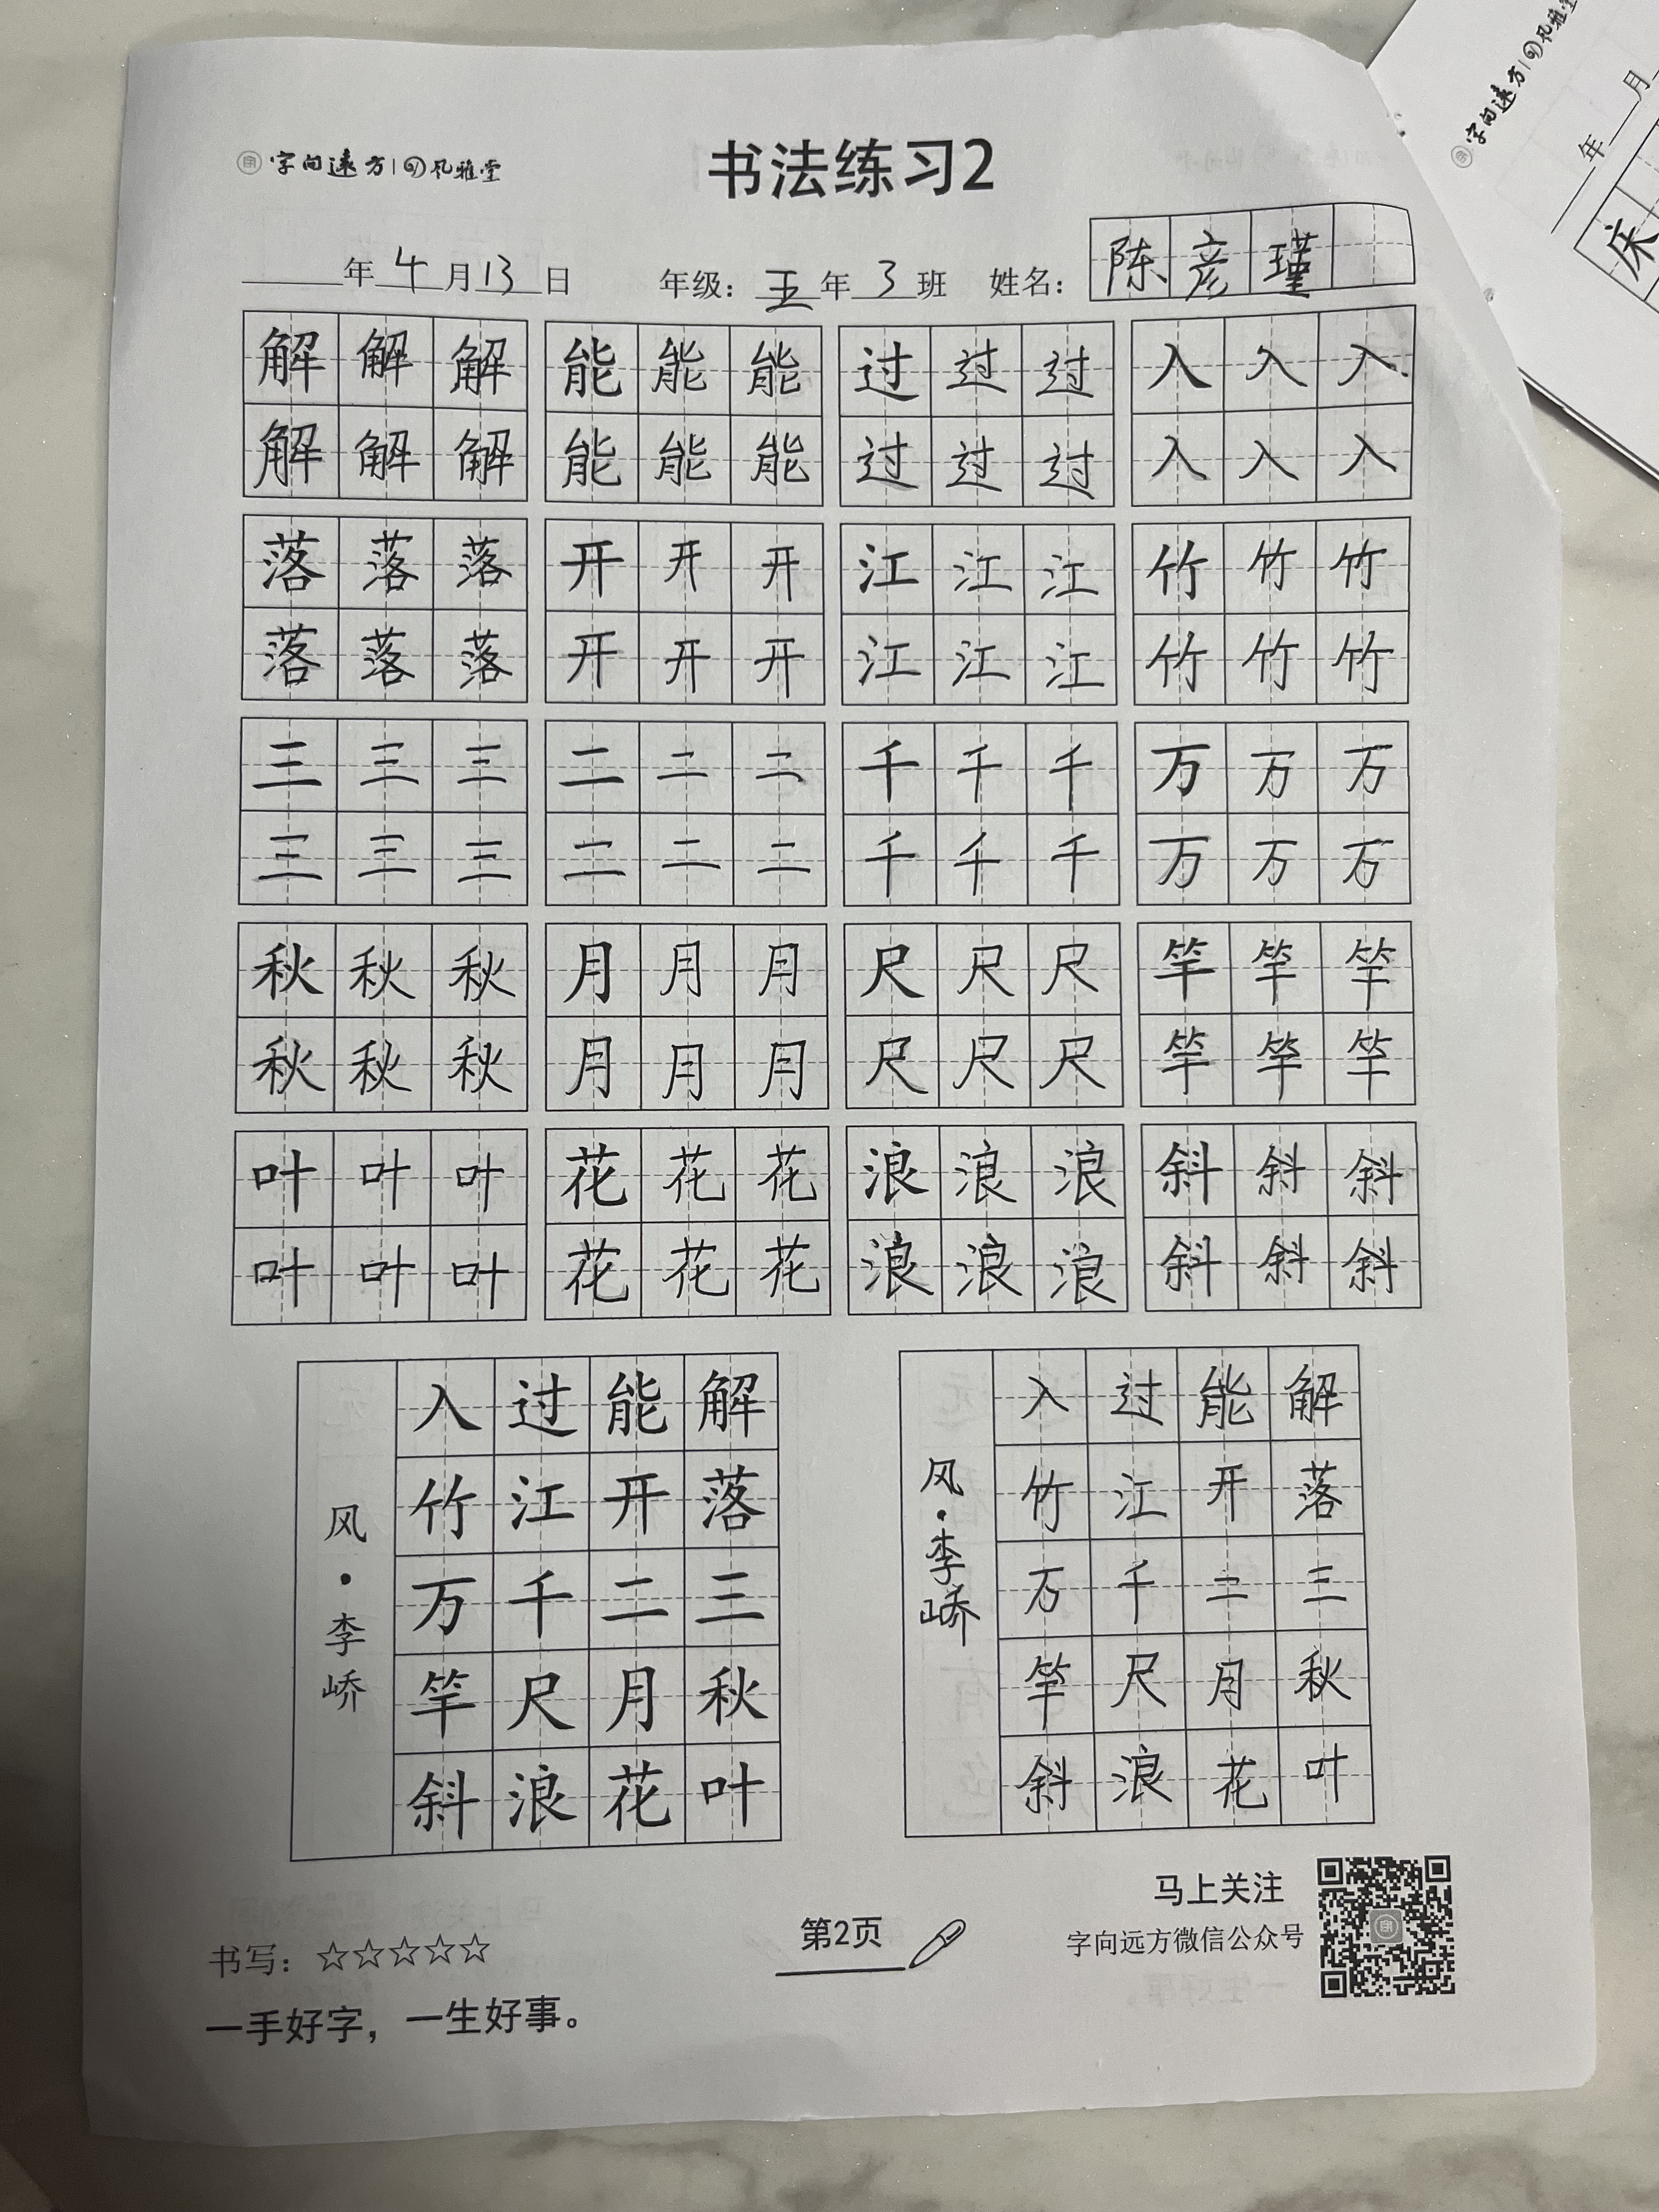 字向远方 | 风雅堂
书法练习2
年 4 月 13 日 年级: 五 年 3 班 姓名: 陈彦瑾
解 解 解 能 能 能 过 过 过 入 入 入
解 解 解 能 能 能 过 过 过 入 入 入
落 落 落 开 开 开 江 江 江 竹 竹 竹
落 落 落 开 开 开 江 江 江 竹 竹 竹
三 三 三 二 二 二 千 千 千 万 万 万
三 三 三 二 二 二 千 千 千 万 万 万
秋 秋 秋 月 月 月 尺 尺 尺 竿 竿 竿
秋 秋 秋 月 月 月 尺 尺 尺 竿 竿 竿
叶 叶 叶 花 花 花 浪 浪 浪 斜 斜 斜
叶 叶 叶 花 花 花 浪 浪 浪 斜 斜 斜
解落三秋叶
能开二月花
过江千尺浪
入竹万竿斜
风·李峤
解落三秋叶
能开二月花
过江千尺浪
入竹万竿斜
风·李峤
书写: ☆☆☆☆☆
一手好字，一生好事。
第2页
马上关注
字向远方微信公众号
字向远方 | 风雅堂
年 月
床